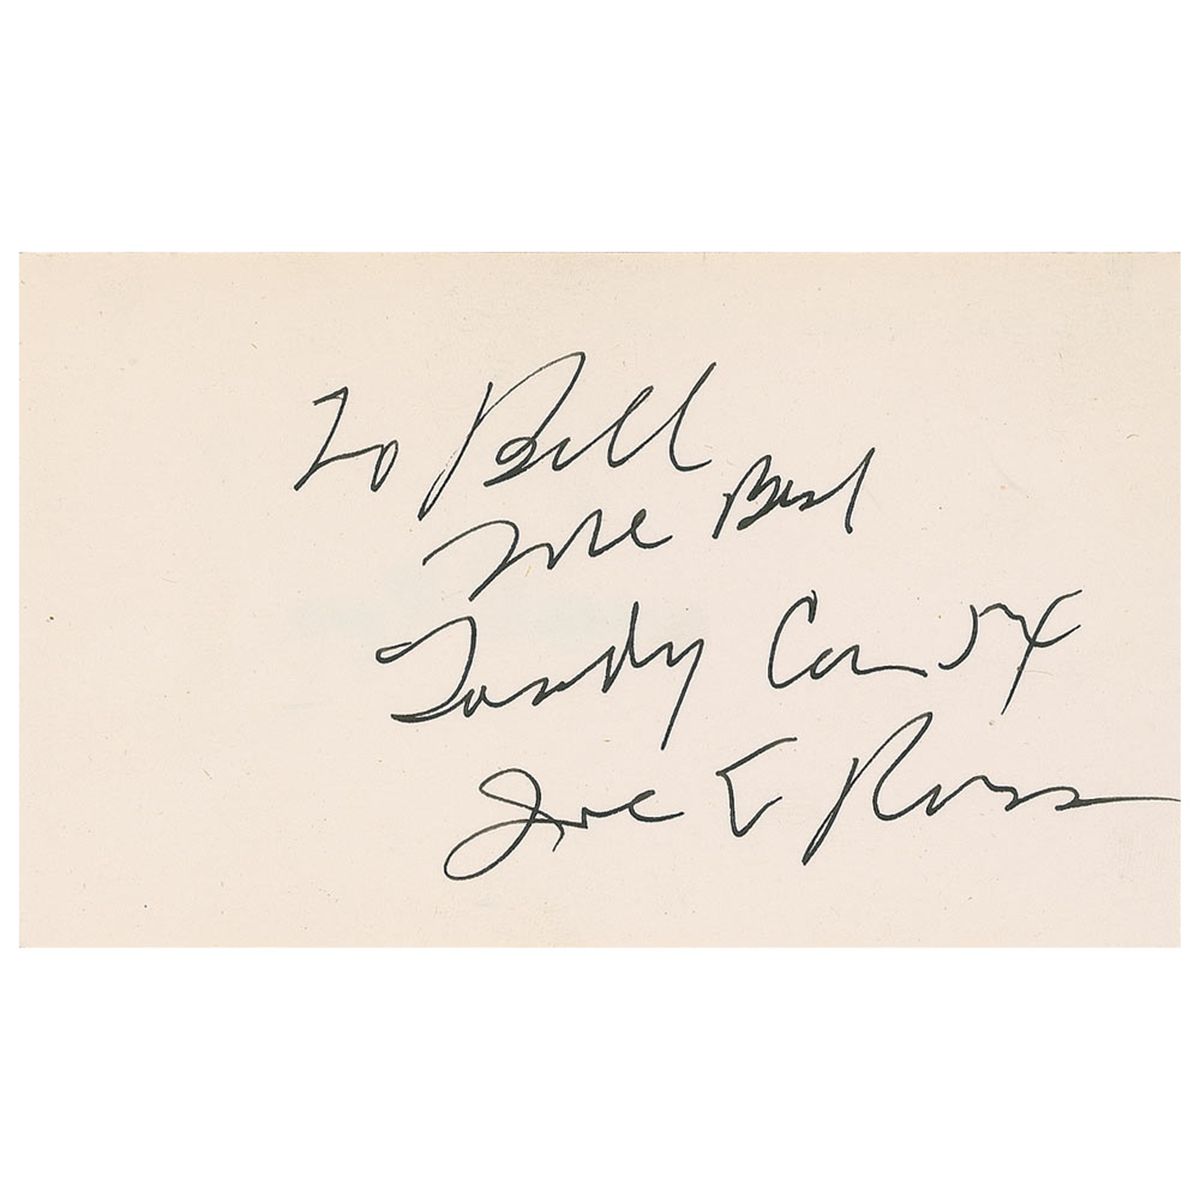 To Bill
The Best
Toody Car 54
Joe E Ross